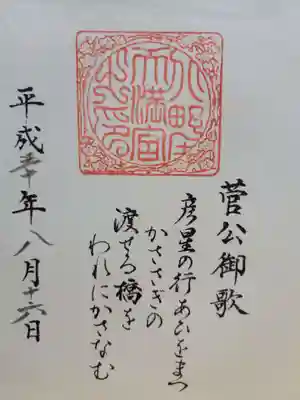 天満宮
菅公御歌
彦星の行あひをまつ
かささぎの
渡せる橋を
われにかさなむ
平成三十年八月十六日